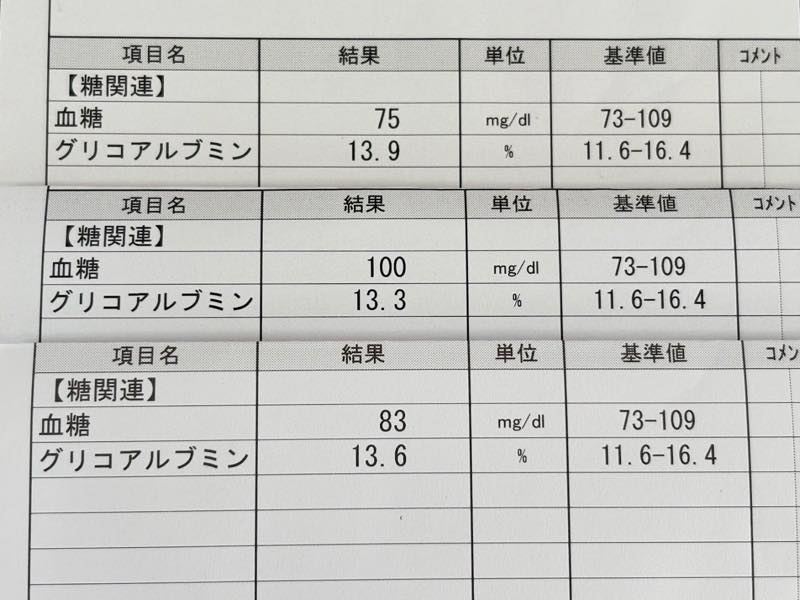 項目名 結果 単位 基準値 コメント
【糖関連】
血糖 75 mg/dl 73-109
グリコアルブミン 13.9 % 11.6-16.4
項目名 結果 単位 基準値 コメント
【糖関連】
血糖 100 mg/dl 73-109
グリコアルブミン 13.3 % 11.6-16.4
項目名 結果 単位 基準値 コメン
【糖関連】
血糖 83 mg/dl 73-109
グリコアルブミン 13.6 % 11.6-16.4